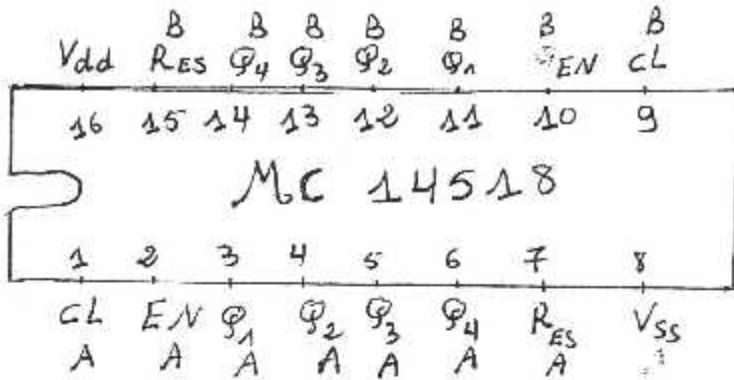 B B B B B B B
Vdd RES Q4 Q3 Q2 Q1 EN CL
16 15 14 13 12 11 10 9
MC 14518
1 2 3 4 5 6 7 8
CL EN Q1 Q2 Q3 Q4 RES VSS
A A A A A A A